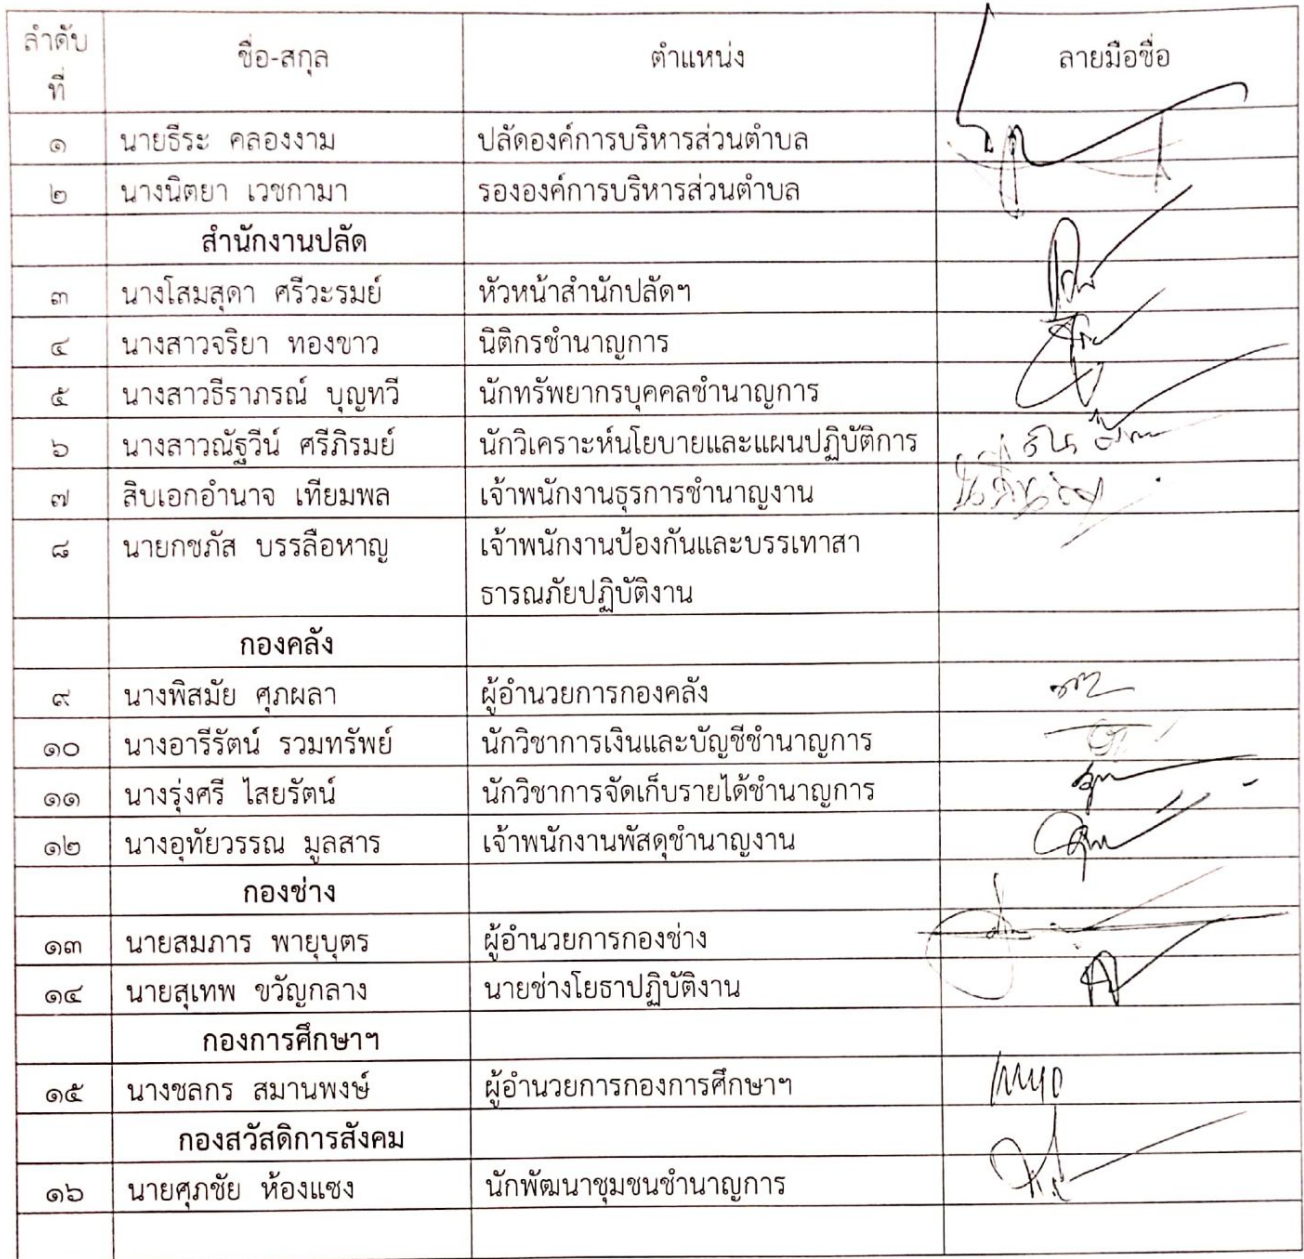 ลำดับที่ ชื่อ-สกุล ตำแหน่ง ลายมือชื่อ
๑ นายธีระ คลองงาม ปลัดองค์การบริหารส่วนตำบล
๒ นางนิตยา เวชกามา รององค์การบริหารส่วนตำบล
สำนักงานปลัด
๓ นางโสมสุดา ศรีวะรมย์ หัวหน้าสำนักปลัดฯ
๔ นางสาวจริยา ทองขาว นิติกรชำนาญการ
๕ นางสาวธีราภรณ์ บุญทวี นักทรัพยากรบุคคลชำนาญการ
๖ นางสาวณัฐวีน์ ศรีภิรมย์ นักวิเคราะห์นโยบายและแผนปฏิบัติการ
๗ สิบเอกอำนาจ เทียมพล เจ้าพนักงานธุรการชำนาญงาน
๘ นายกชภัส บรรลือหาญ เจ้าพนักงานป้องกันและบรรเทาสา
ธารณภัยปฏิบัติงาน
กองคลัง
๙ นางพิสมัย ศุภผลา ผู้อำนวยการกองคลัง
๑๐ นางอารีรัตน์ รวมทรัพย์ นักวิชาการเงินและบัญชีชำนาญการ
๑๑ นางรุ่งศรี ไสยรัตน์ นักวิชาการจัดเก็บรายได้ชำนาญการ
๑๒ นางอุทัยวรรณ มูลสาร เจ้าพนักงานพัสดุชำนาญงาน
กองช่าง
๑๓ นายสมภาร พายุบุตร ผู้อำนวยการกองช่าง
๑๔ นายสุเทพ ขวัญกลาง นายช่างโยธาปฏิบัติงาน
กองการศึกษาฯ
๑๕ นางชลกร สมานพงษ์ ผู้อำนวยการกองการศึกษาฯ
กองสวัสดิการสังคม
๑๖ นายศุภชัย ห้องแซง นักพัฒนาชุมชนชำนาญการ